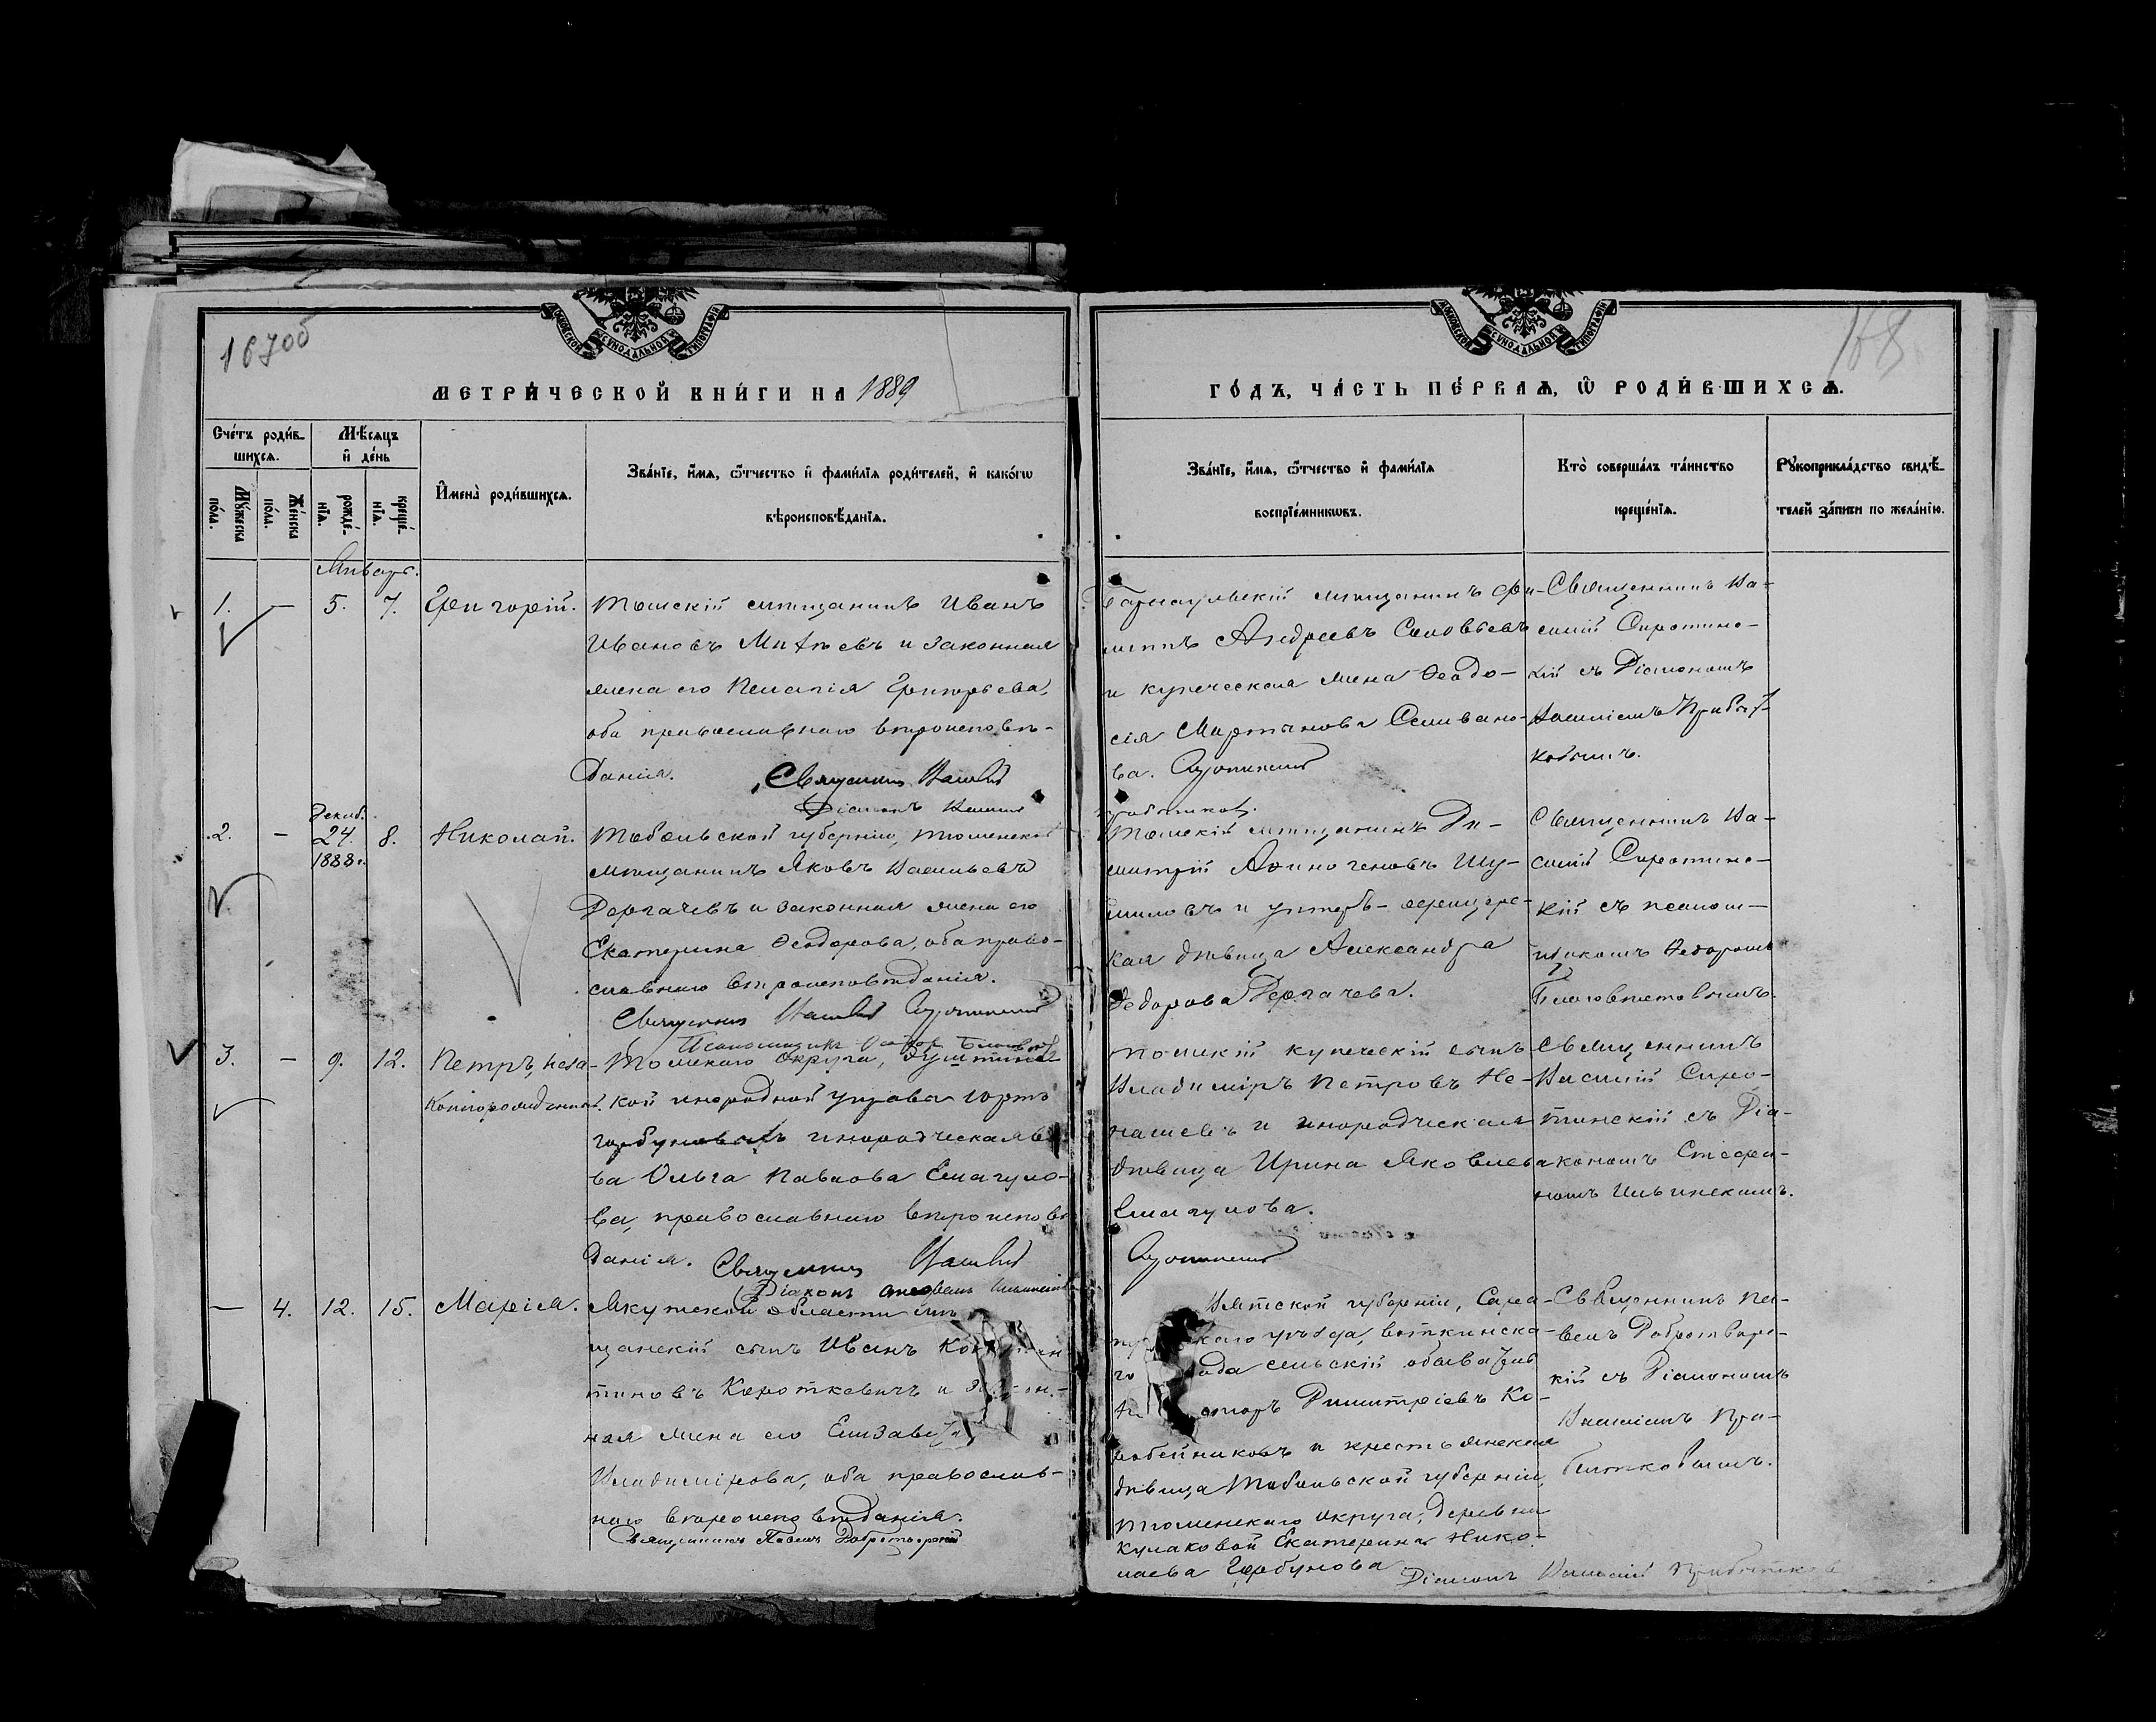 16705
168.
МЕТРИЧЕСКОЙ КНИГИ НА 1889
ГОДЪ, ЧАСТЬ ПЕРВАЯ, Ѡ РОДИВШИХСЯ.
Счетъ родив-
шихся.
Мѣсяцъ
и день
Мужеска пола.
Женска пола.
рожде-
нія.
креще-
нія.
Имена родившихся.
Званіе, имя, отчество и фамилія родителей, и какогѡ
вѣроисповѣданія.
Званіе, имя, отчество и фамилія
воспріемникѡвъ.
Кто совершалъ таинство
крещенія.
Рукоприкладство свидѣ-
телей записи по желанію.
Январь.
1. — 5. 7. Григорій.
Томскій мѣщанинъ Иванъ
Ивановъ Митѣевъ и законная
жена его Пелагія Григорьева,
оба православнаго вѣроисповѣ-
данія.
Священникъ Василій
Діаконъ Василій
Барнаульскій мѣщанинъ Фи-
липпъ Андреевъ Соловьевъ
и купеческая жена Ѳеодо-
сія Мартынова Селивано-
ва. Сиротинскій
Прибытковъ.
Священникъ Ва-
силій Сиротинс-
кій съ Діакономъ
Василіемъ Прибыт-
ковымъ.
2. — Декаб. 24. 1888 г. 8. Николай.
Тобольской губерніи, тюменской
мѣщанинъ Яковъ Васильевъ
Дергачевъ и законная жена его
Екатерина Ѳеодорова, оба право-
славнаго вѣроисповѣданія.
Священникъ Василій Сиротинскій
Псаломщикъ
Томскій мѣщанинъ Ди-
митрій Аѳиногеновъ Шу-
миловъ и унтеръ-офицерс-
кая дѣвица Александра
Ѳедорова Дергачева.
Священникъ Ва-
силій Сиротинс-
кій съ псалом-
щикомъ Ѳедоромъ
Благовѣстовымъ.
3. — 9. 12. Петръ, неза-
коннорожденный.
Томскаго округа,
кой инородной управы юртъ
инородческая
ва Ольга Павлова Емагуло-
ва, православнаго вѣроисповѣ
данія. Священникъ Василій
Діаконъ Стефанъ Ильинскій
Томскій купеческій сынъ
Владиміръ Петровъ Не-
нашевъ и инородческая
дѣвица Ирина Яковлева
Емагулова.
Сиротинскій
Священникъ
Василій Сиро-
тинскій съ Діа-
кономъ Стефа-
номъ Ильинскимъ.
— 4. 12. 15. Марія.
Якутской области
щанскій сынъ Иванъ
тиновъ Короткевичъ и
ная жена его Елизавета
Владимірова, оба православ-
наго вѣроисповѣданія.
Священникъ Павелъ Добротворскій
Вятской губерніи, Сара-
скаго уѣзда, воткинска-
сельскій обыватель
Димитріевъ Ко-
робейниковъ и крестьянская
дѣвица Тобольской губерніи,
тюменскаго округа, деревни
Кулаковой Екатерина Нико-
лаева Горбунова
Діаконъ Василій Прибытковъ
Священникъ Па-
велъ Добротворс-
кій съ Діакономъ
Василіемъ При-
бытковымъ.